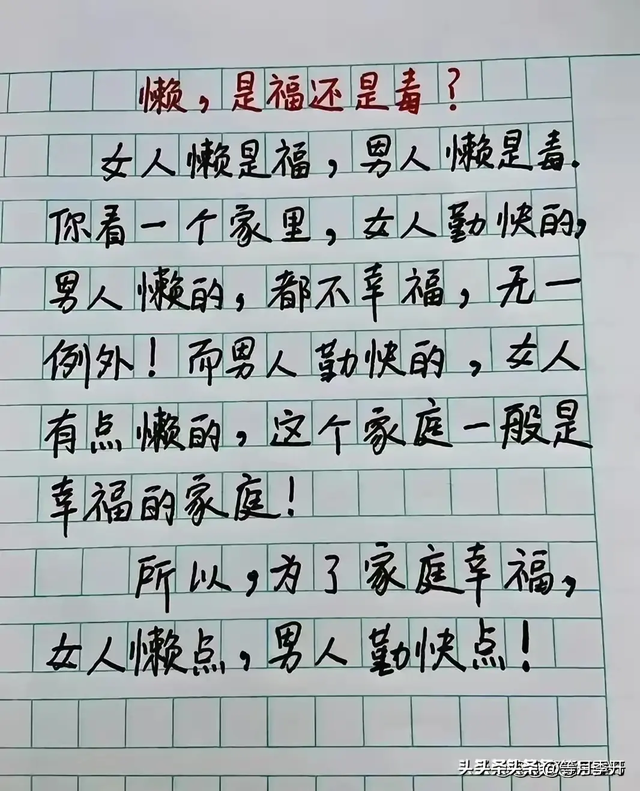 懒，是福还是毒？
女人懒是福，男人懒是毒.
你看一个家里，女人勤快的，
男人懒的，都不幸福，无一
例外！而男人勤快的，女人
有点懒的，这个家庭一般是
幸福的家庭！
所以，为了家庭幸福，
女人懒点，男人勤快点！